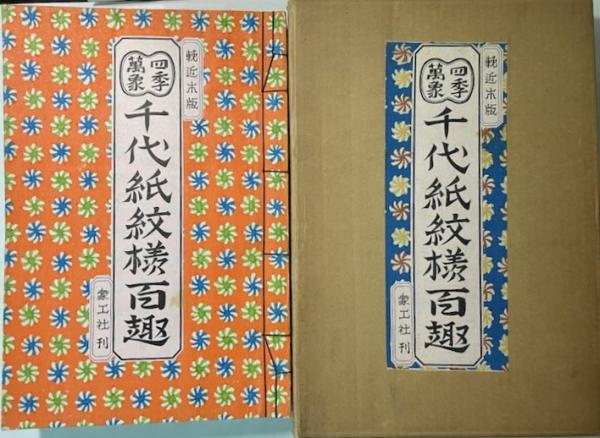 輓近木版
四季
萬象
千代紙紋様百趣
象工社刊
輓近木版
四季
萬象
千代紙紋様百趣
象工社刊